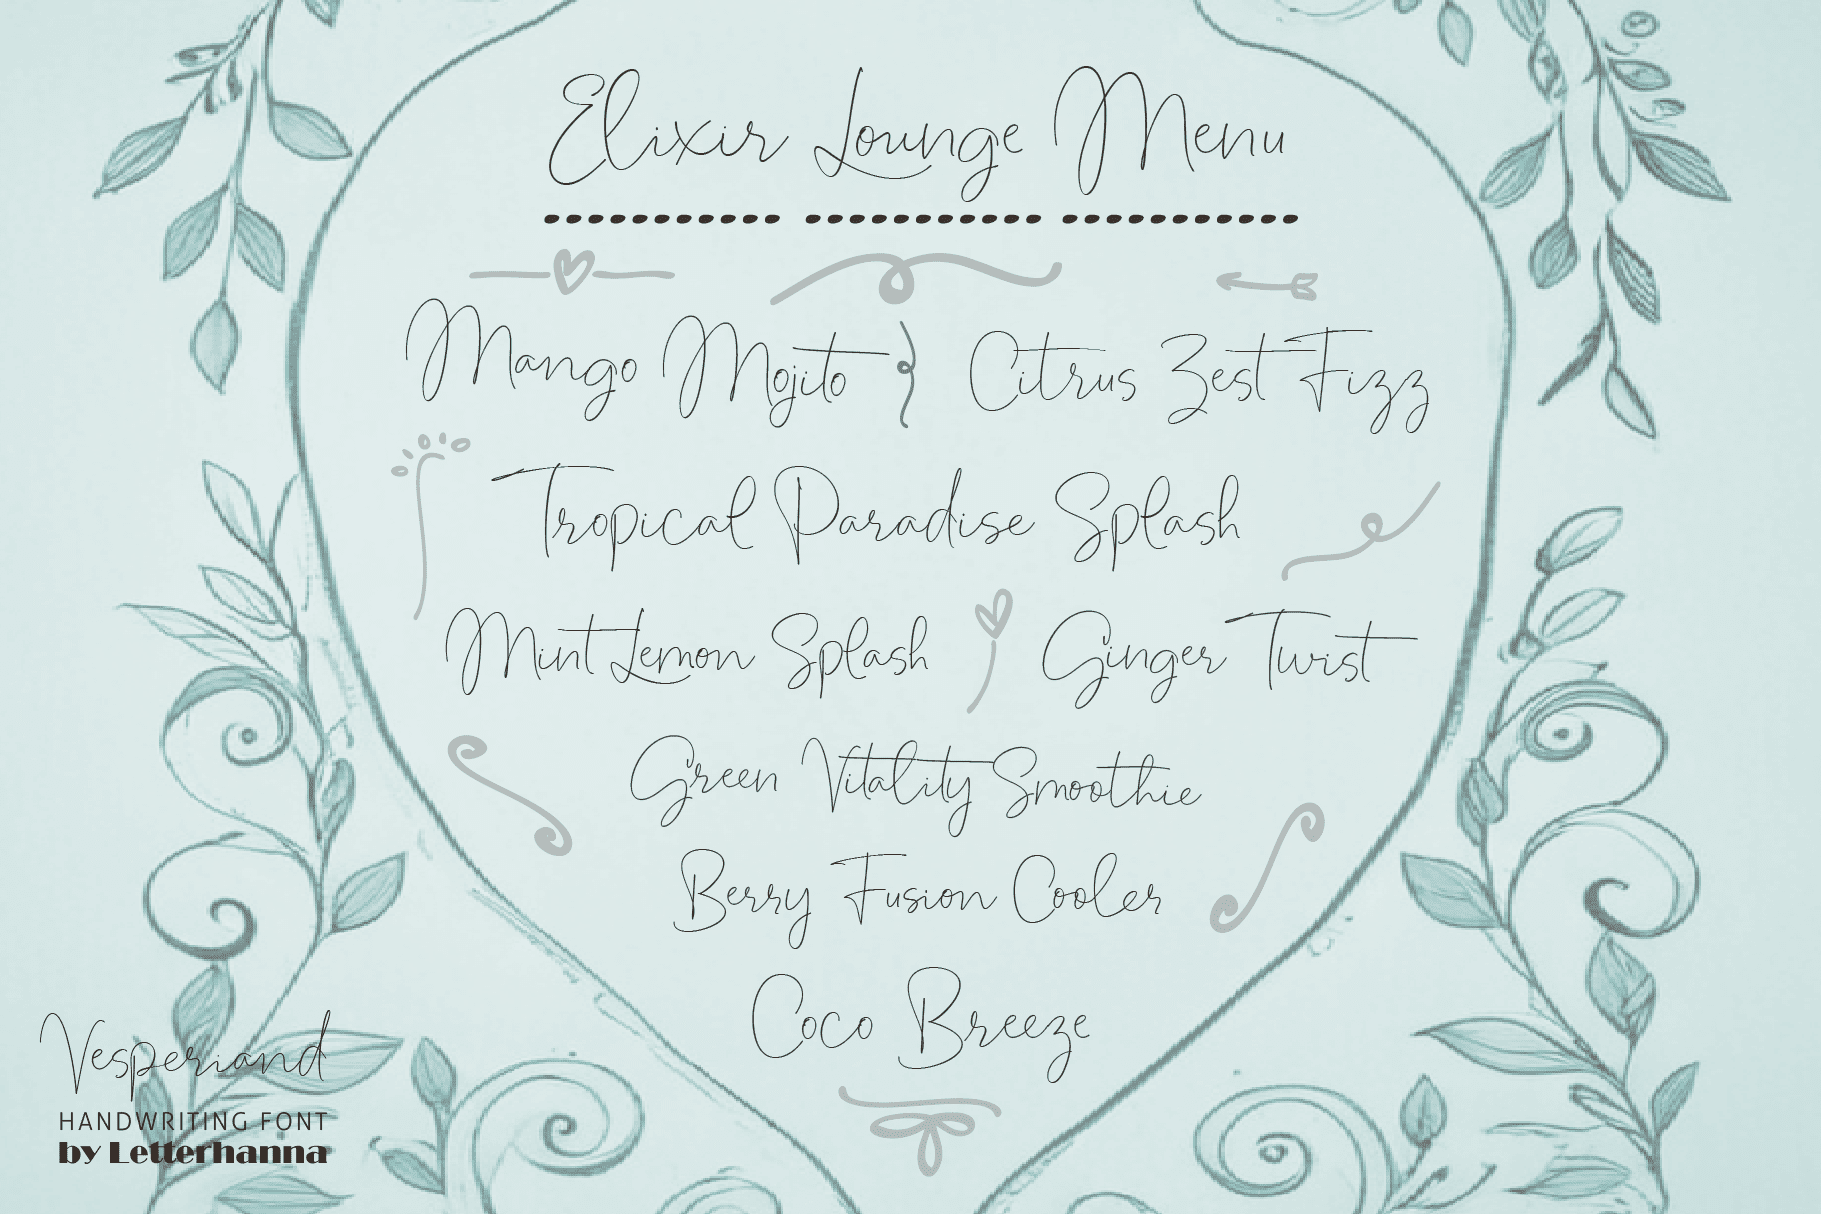 Elixir Lounge Menu
Mango Mojito } Citrus Zest Fizz
Tropical Paradise Splash
Mint Lemon Splash Ginger Twist
Green Vitality Smoothie
Berry Fusion Cooler
Coco Breeze
Vesperiand
HANDWRITING FONT
by Letterhanna